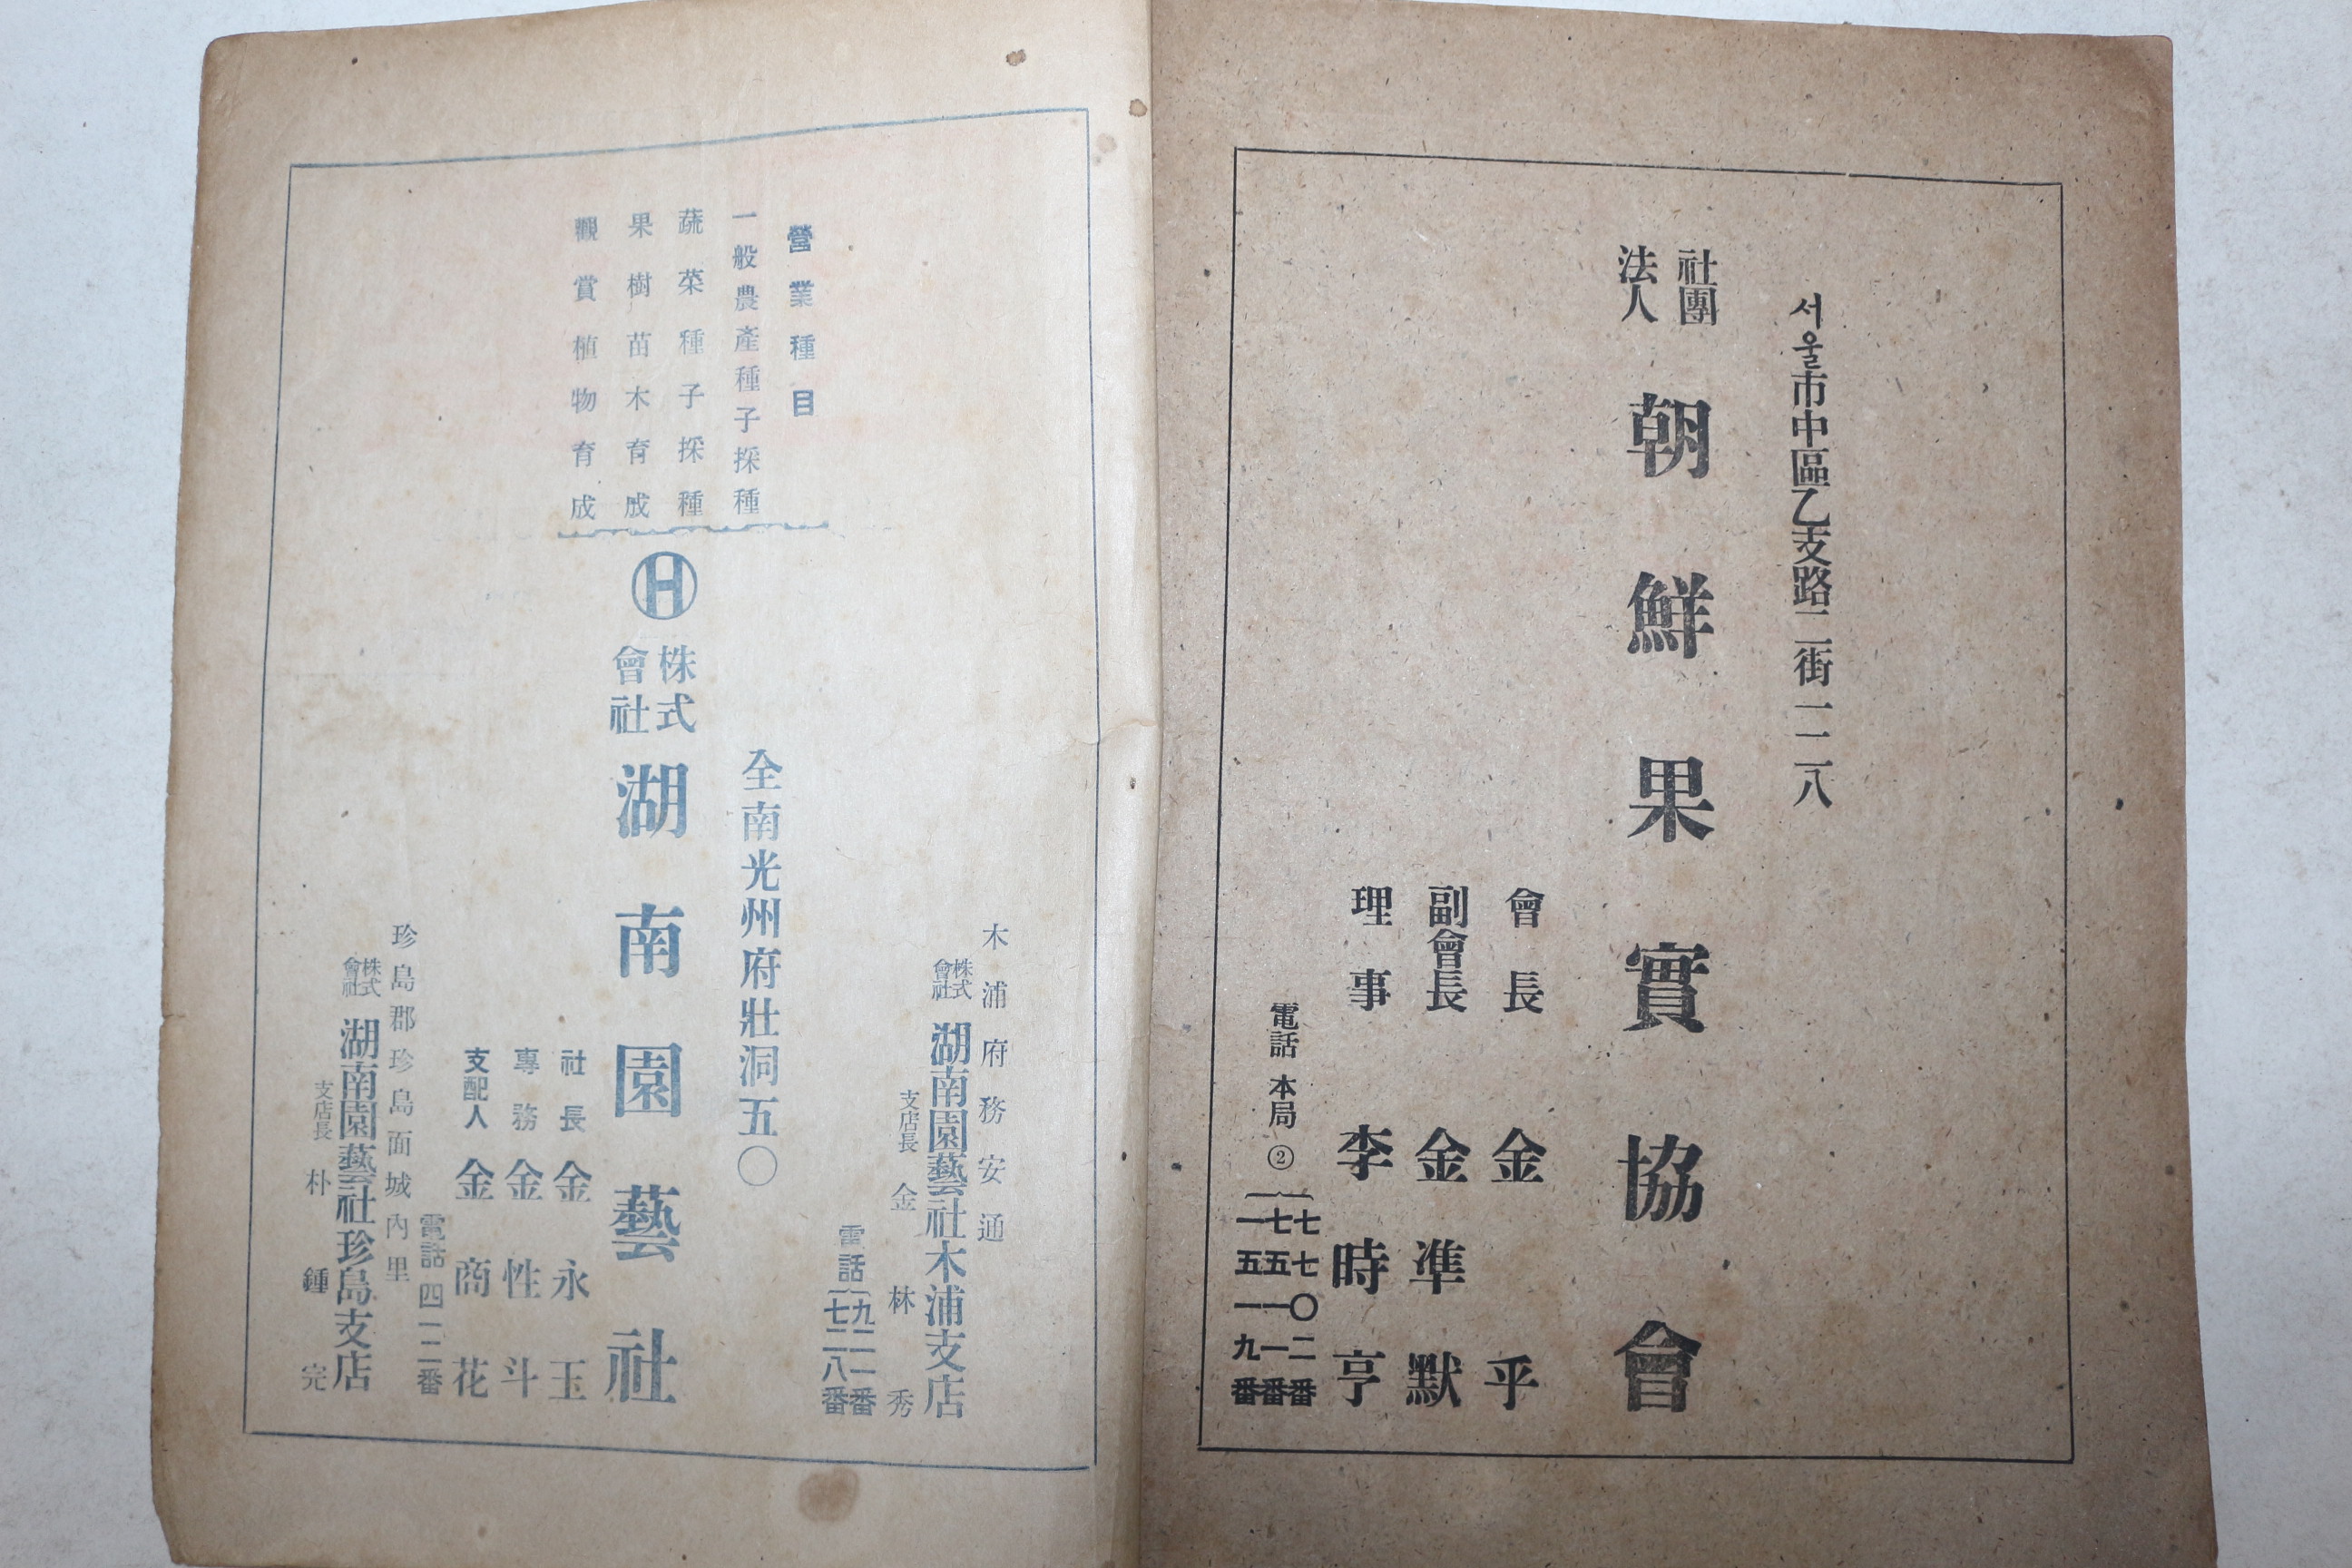 서울市中區乙支路二街一二八
社團法人 朝鮮果實協會
會長 金乎
副會長 金準默
理事 李時亨
電話 本局② 七七〇二番
七五一一番
一五一九番
木浦府務安通
株式會社 湖南園藝社木浦支店
支店長 金林秀
電話 九二一番
七二八番
營業種目
一般農產種子採種
蔬菜種子採種
果樹苗木育成
觀賞植物育成
全南光州府壯洞五〇
H 株式會社 湖南園藝社
社長 金永玉
專務 金性斗
支配人 金商花
電話 四一二番
珍島郡珍島面城內里
株式會社 湖南園藝社珍島支店
支店長 朴鍾完